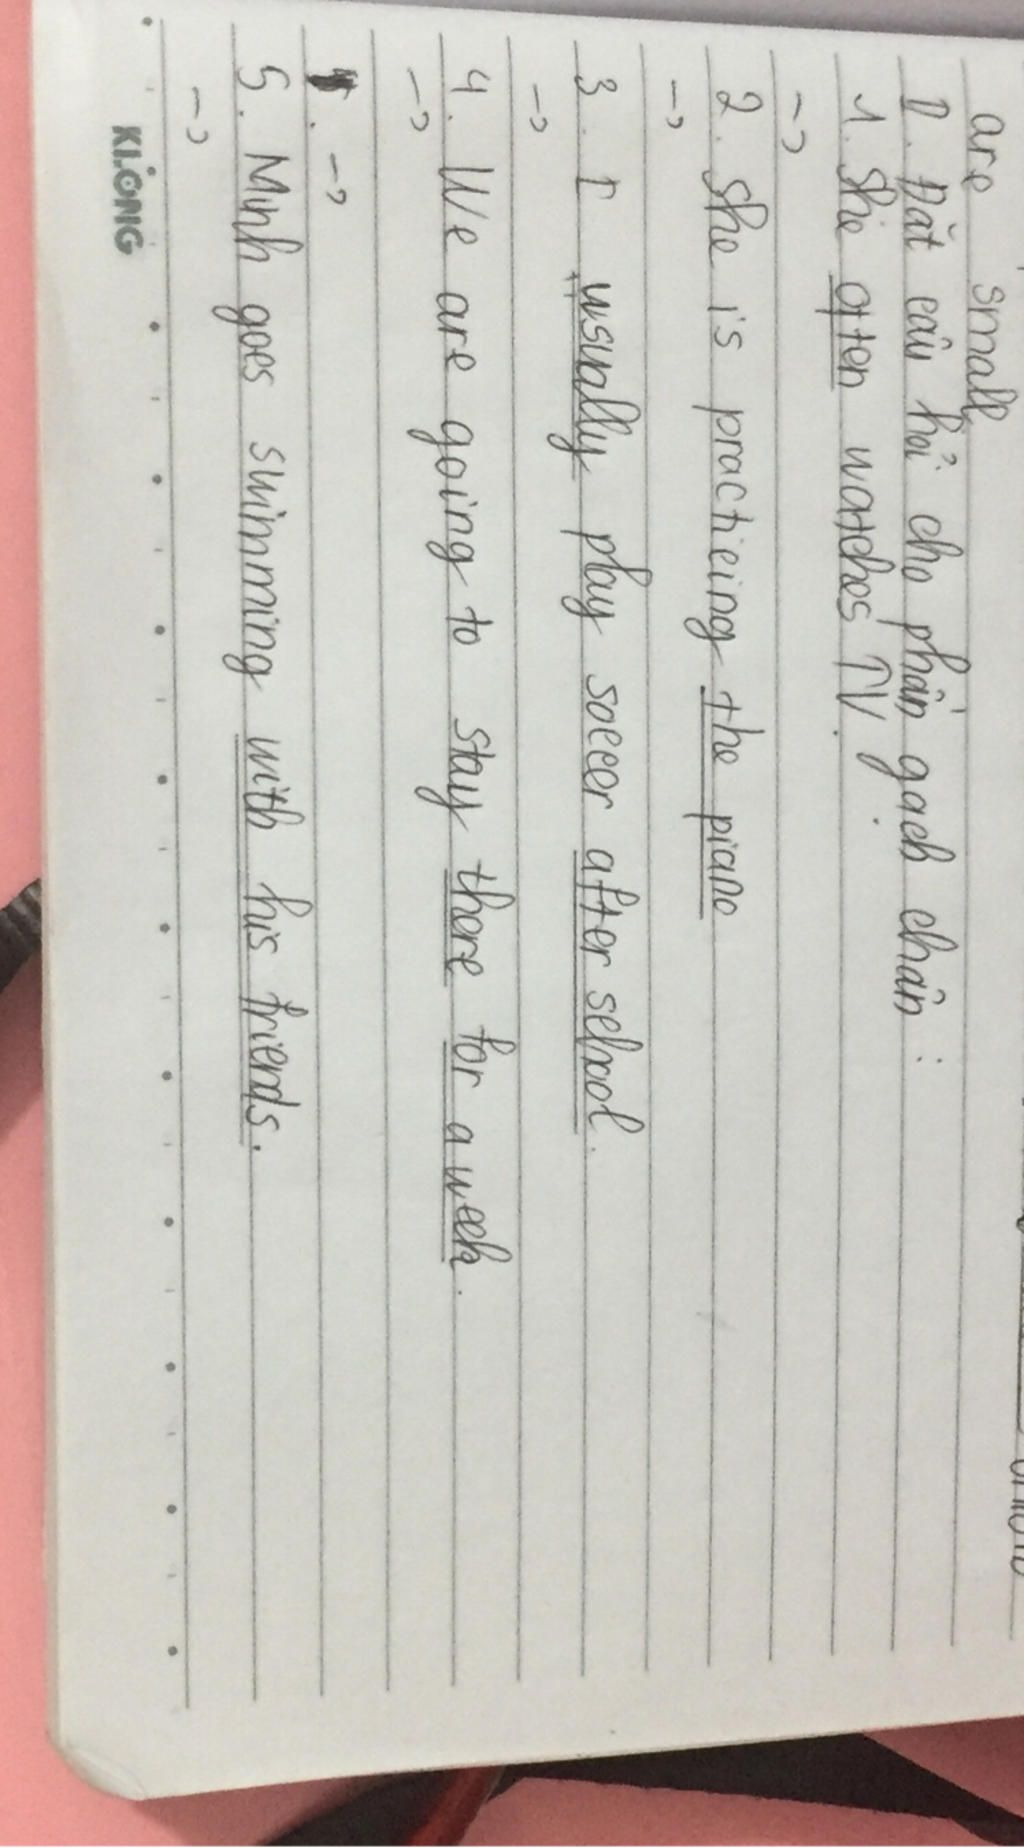 are small
I. Đặt câu hỏi cho phần gạch chân :
1. She often watches TV.
→
2. She is practicing the piano
→
3. I usually play soccer after school.
→
4. We are going to stay there for a week.
→
→
5. Minh goes swimming with his friends.
→
KLONG